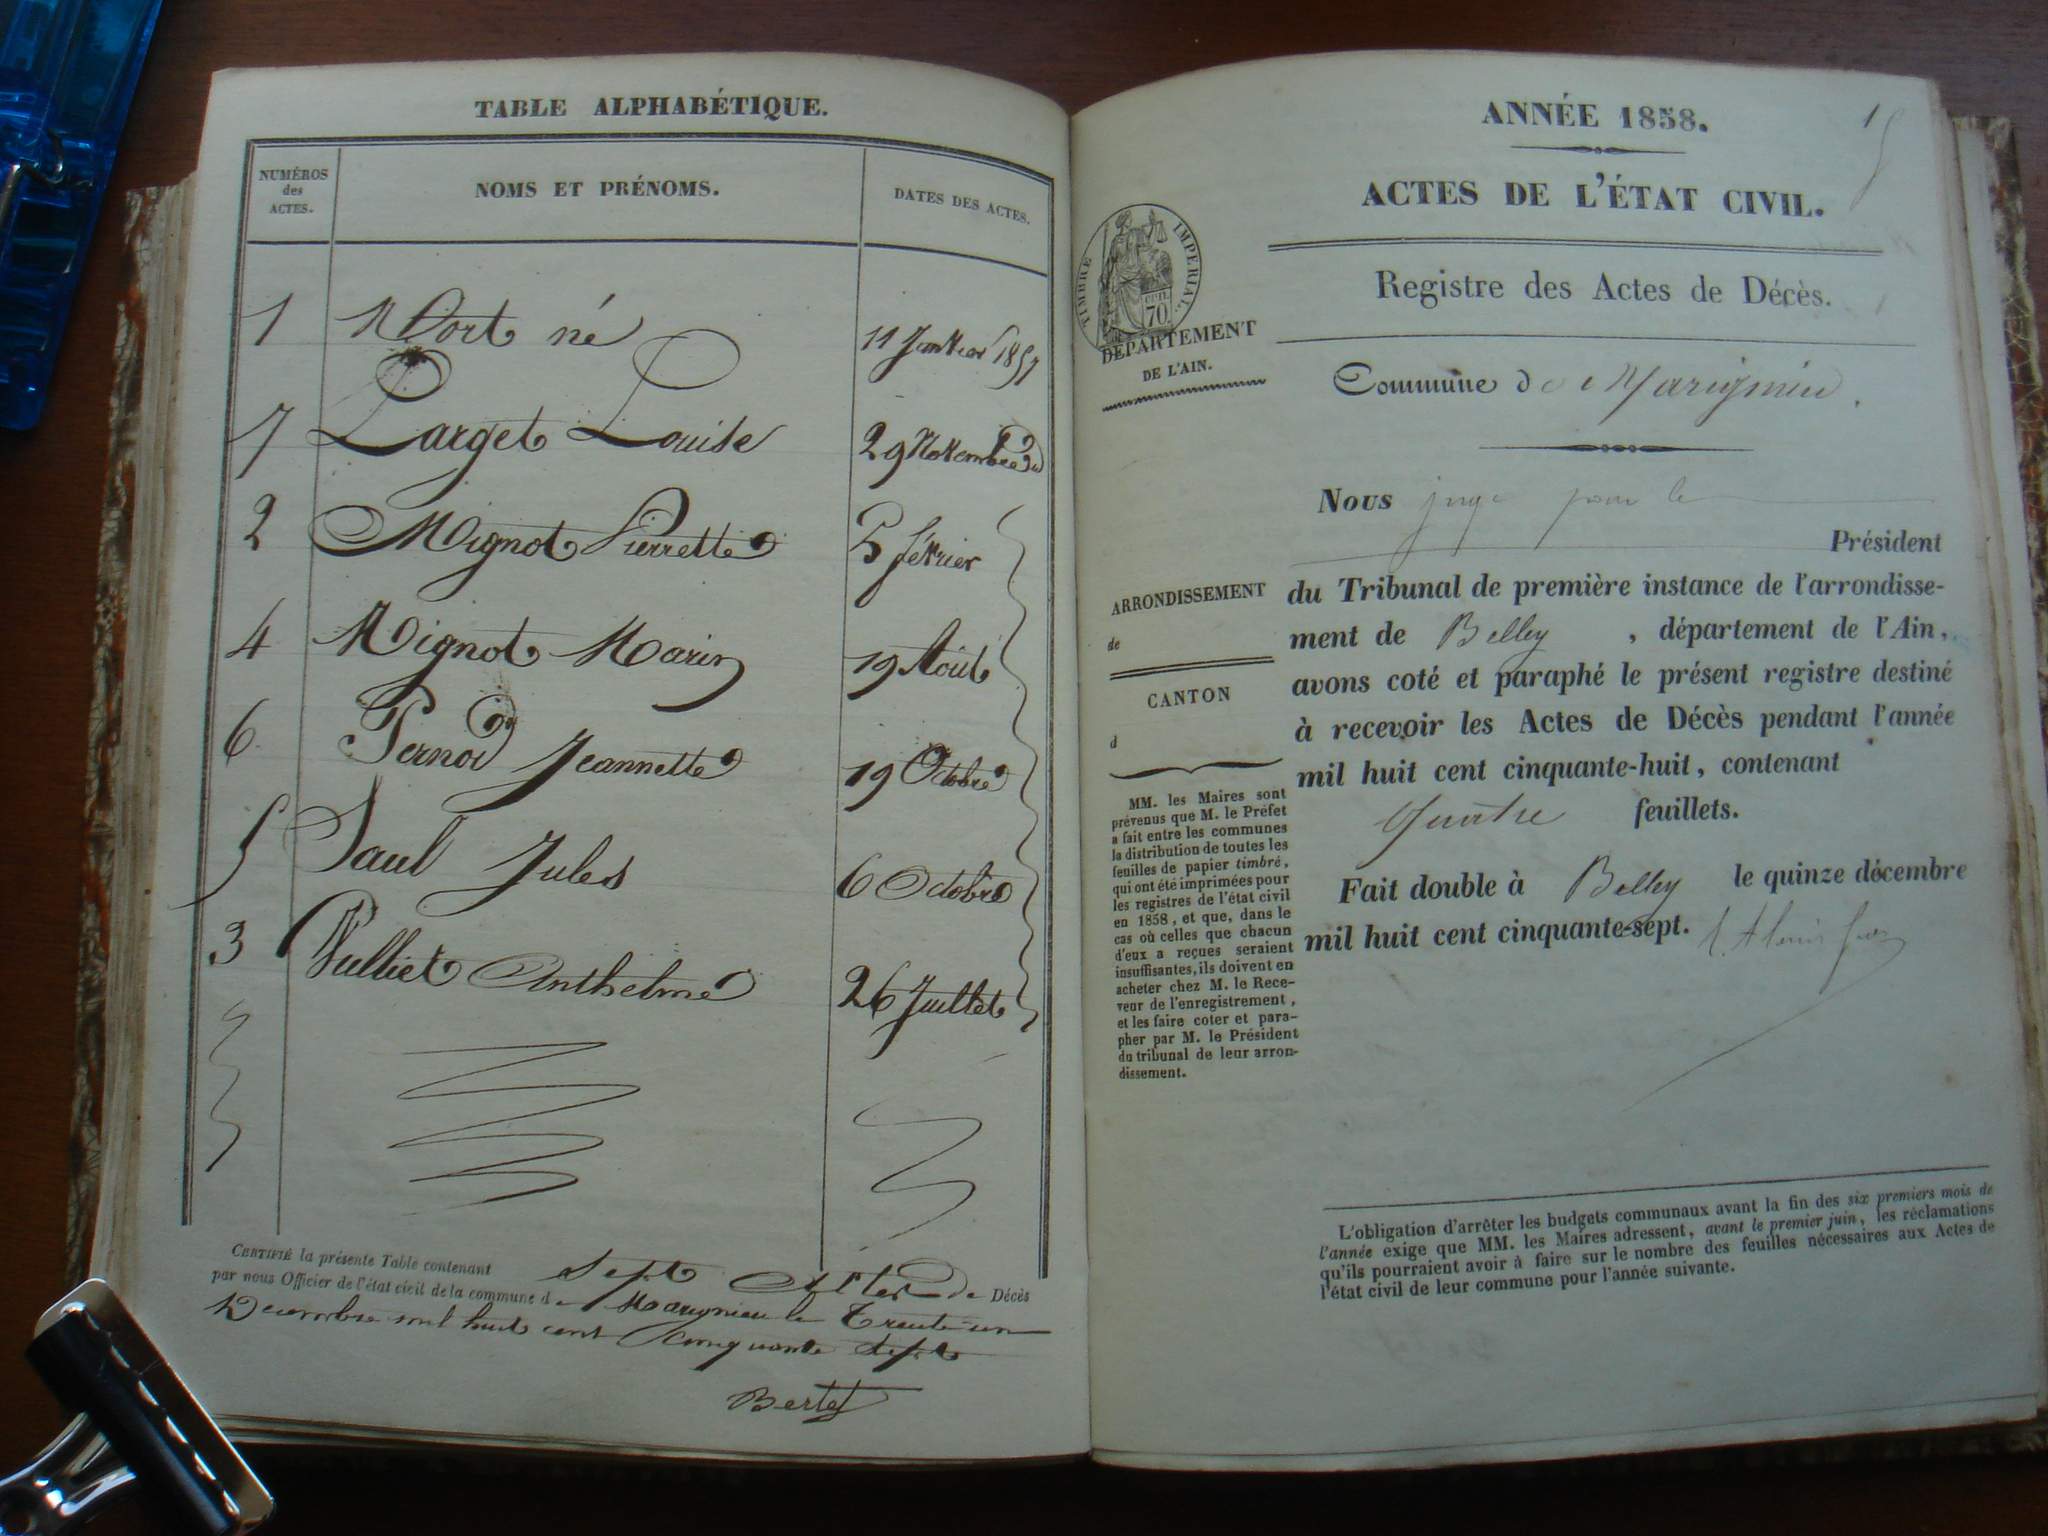 TABLE ALPHABÉTIQUE.
NUMÉROS des ACTES.
NOMS ET PRÉNOMS.
DATES DES ACTES.
1 Mort né 11 Janvier 1857
7 Larget Louise 29 Novembre
2 Mignot Pierrette 5 février
4 Mignot Marin 19 Août
6 Pernod Jeannette 19 Octobre
5 Saul Jules 6 Octobre
3 Vulliet Anthelme 26 Juillet
CERTIFIÉ la présente Table contenant Sept Actes de Décès
par nous Officier de l'état civil de la commune de Marignieu le Trente un
Décembre mil huit cent cinquante sept
Bertet
ANNÉE 1858.
ACTES DE L'ÉTAT CIVIL.
TIMBRE IMPERIAL.
70
DÉPARTEMENT
DE L'AIN.
Registre des Actes de Décès.
Commune de Marignieu.
Nous juge pour le
Président
du Tribunal de première instance de l'arrondisse-
ment de Belley, département de l'Ain,
avons coté et paraphé le présent registre destiné
à recevoir les Actes de Décès pendant l'année
mil huit cent cinquante-huit, contenant
Quatre feuillets.
Fait double à Belley le quinze décembre
mil huit cent cinquante-sept.
ARRONDISSEMENT
de
CANTON
d
MM. les Maires sont
prévenus que M. le Préfet
a fait entre les communes
la distribution de toutes les
feuilles de papier timbré,
qui ont été imprimées pour
les registres de l'état civil
en 1858, et que, dans le
cas où celles que chacun
d'eux a reçues seraient
insuffisantes, ils doivent en
acheter chez M. le Rece-
veur de l'enregistrement,
et les faire coter et para-
pher par M. le Président
du tribunal de leur arron-
dissement.
L'obligation d'arrêter les budgets communaux avant la fin des six premiers mois de
l'année exige que MM. les Maires adressent, avant le premier juin, les réclamations
qu'ils pourraient avoir à faire sur le nombre des feuilles nécessaires aux Actes de
l'état civil de leur commune pour l'année suivante.